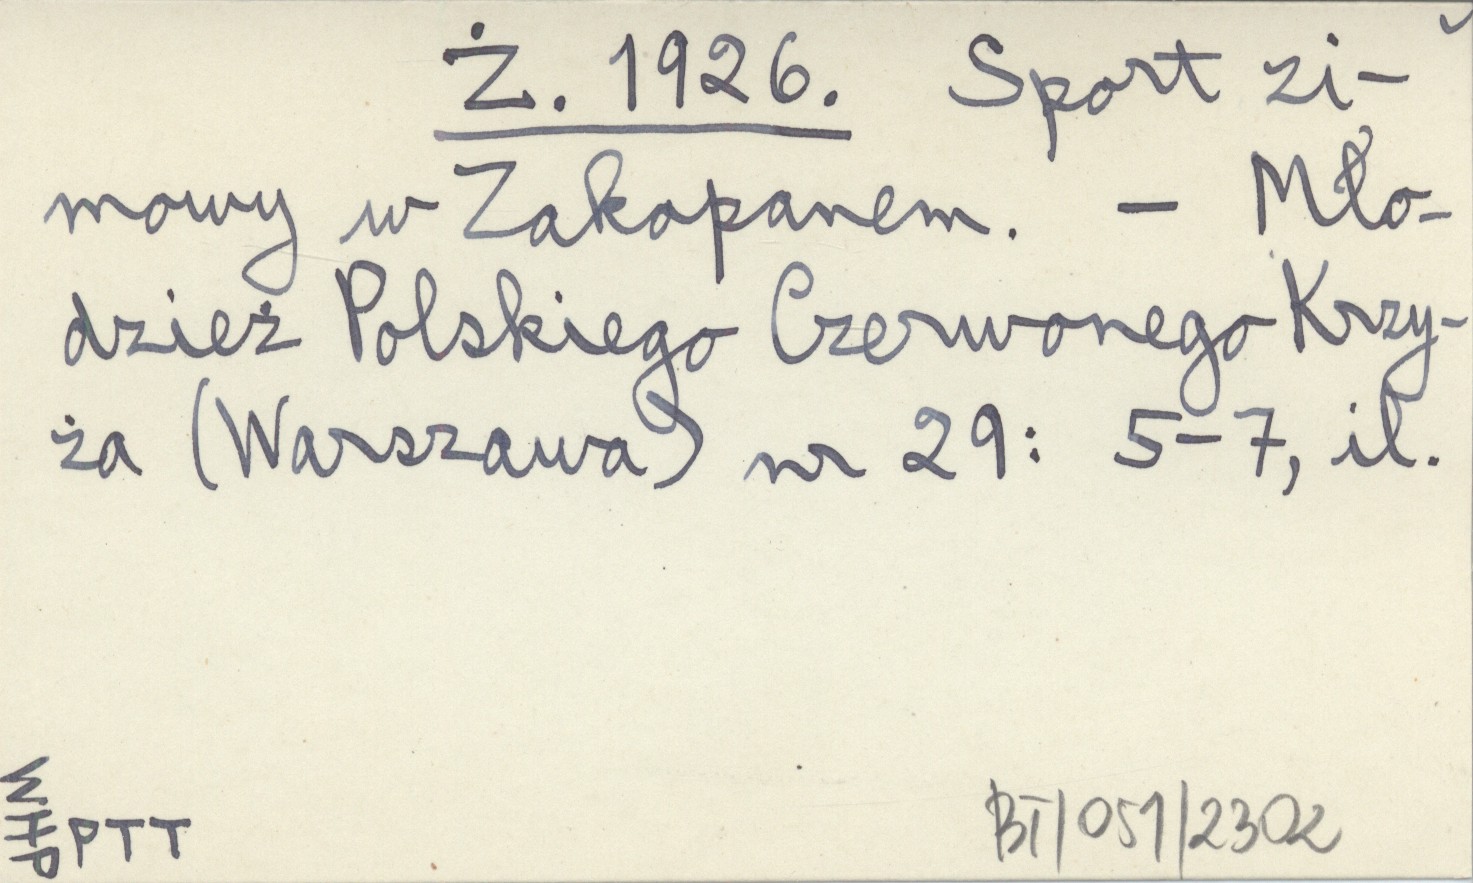 Ż. 1926. Sport zi-
mowy w Zakopanem. - Mło-
dzież Polskiego Czerwonego Krzy-
ża (Warszawa) nr 29: 5-7, il.
WHP
PTT
BT/051/2302